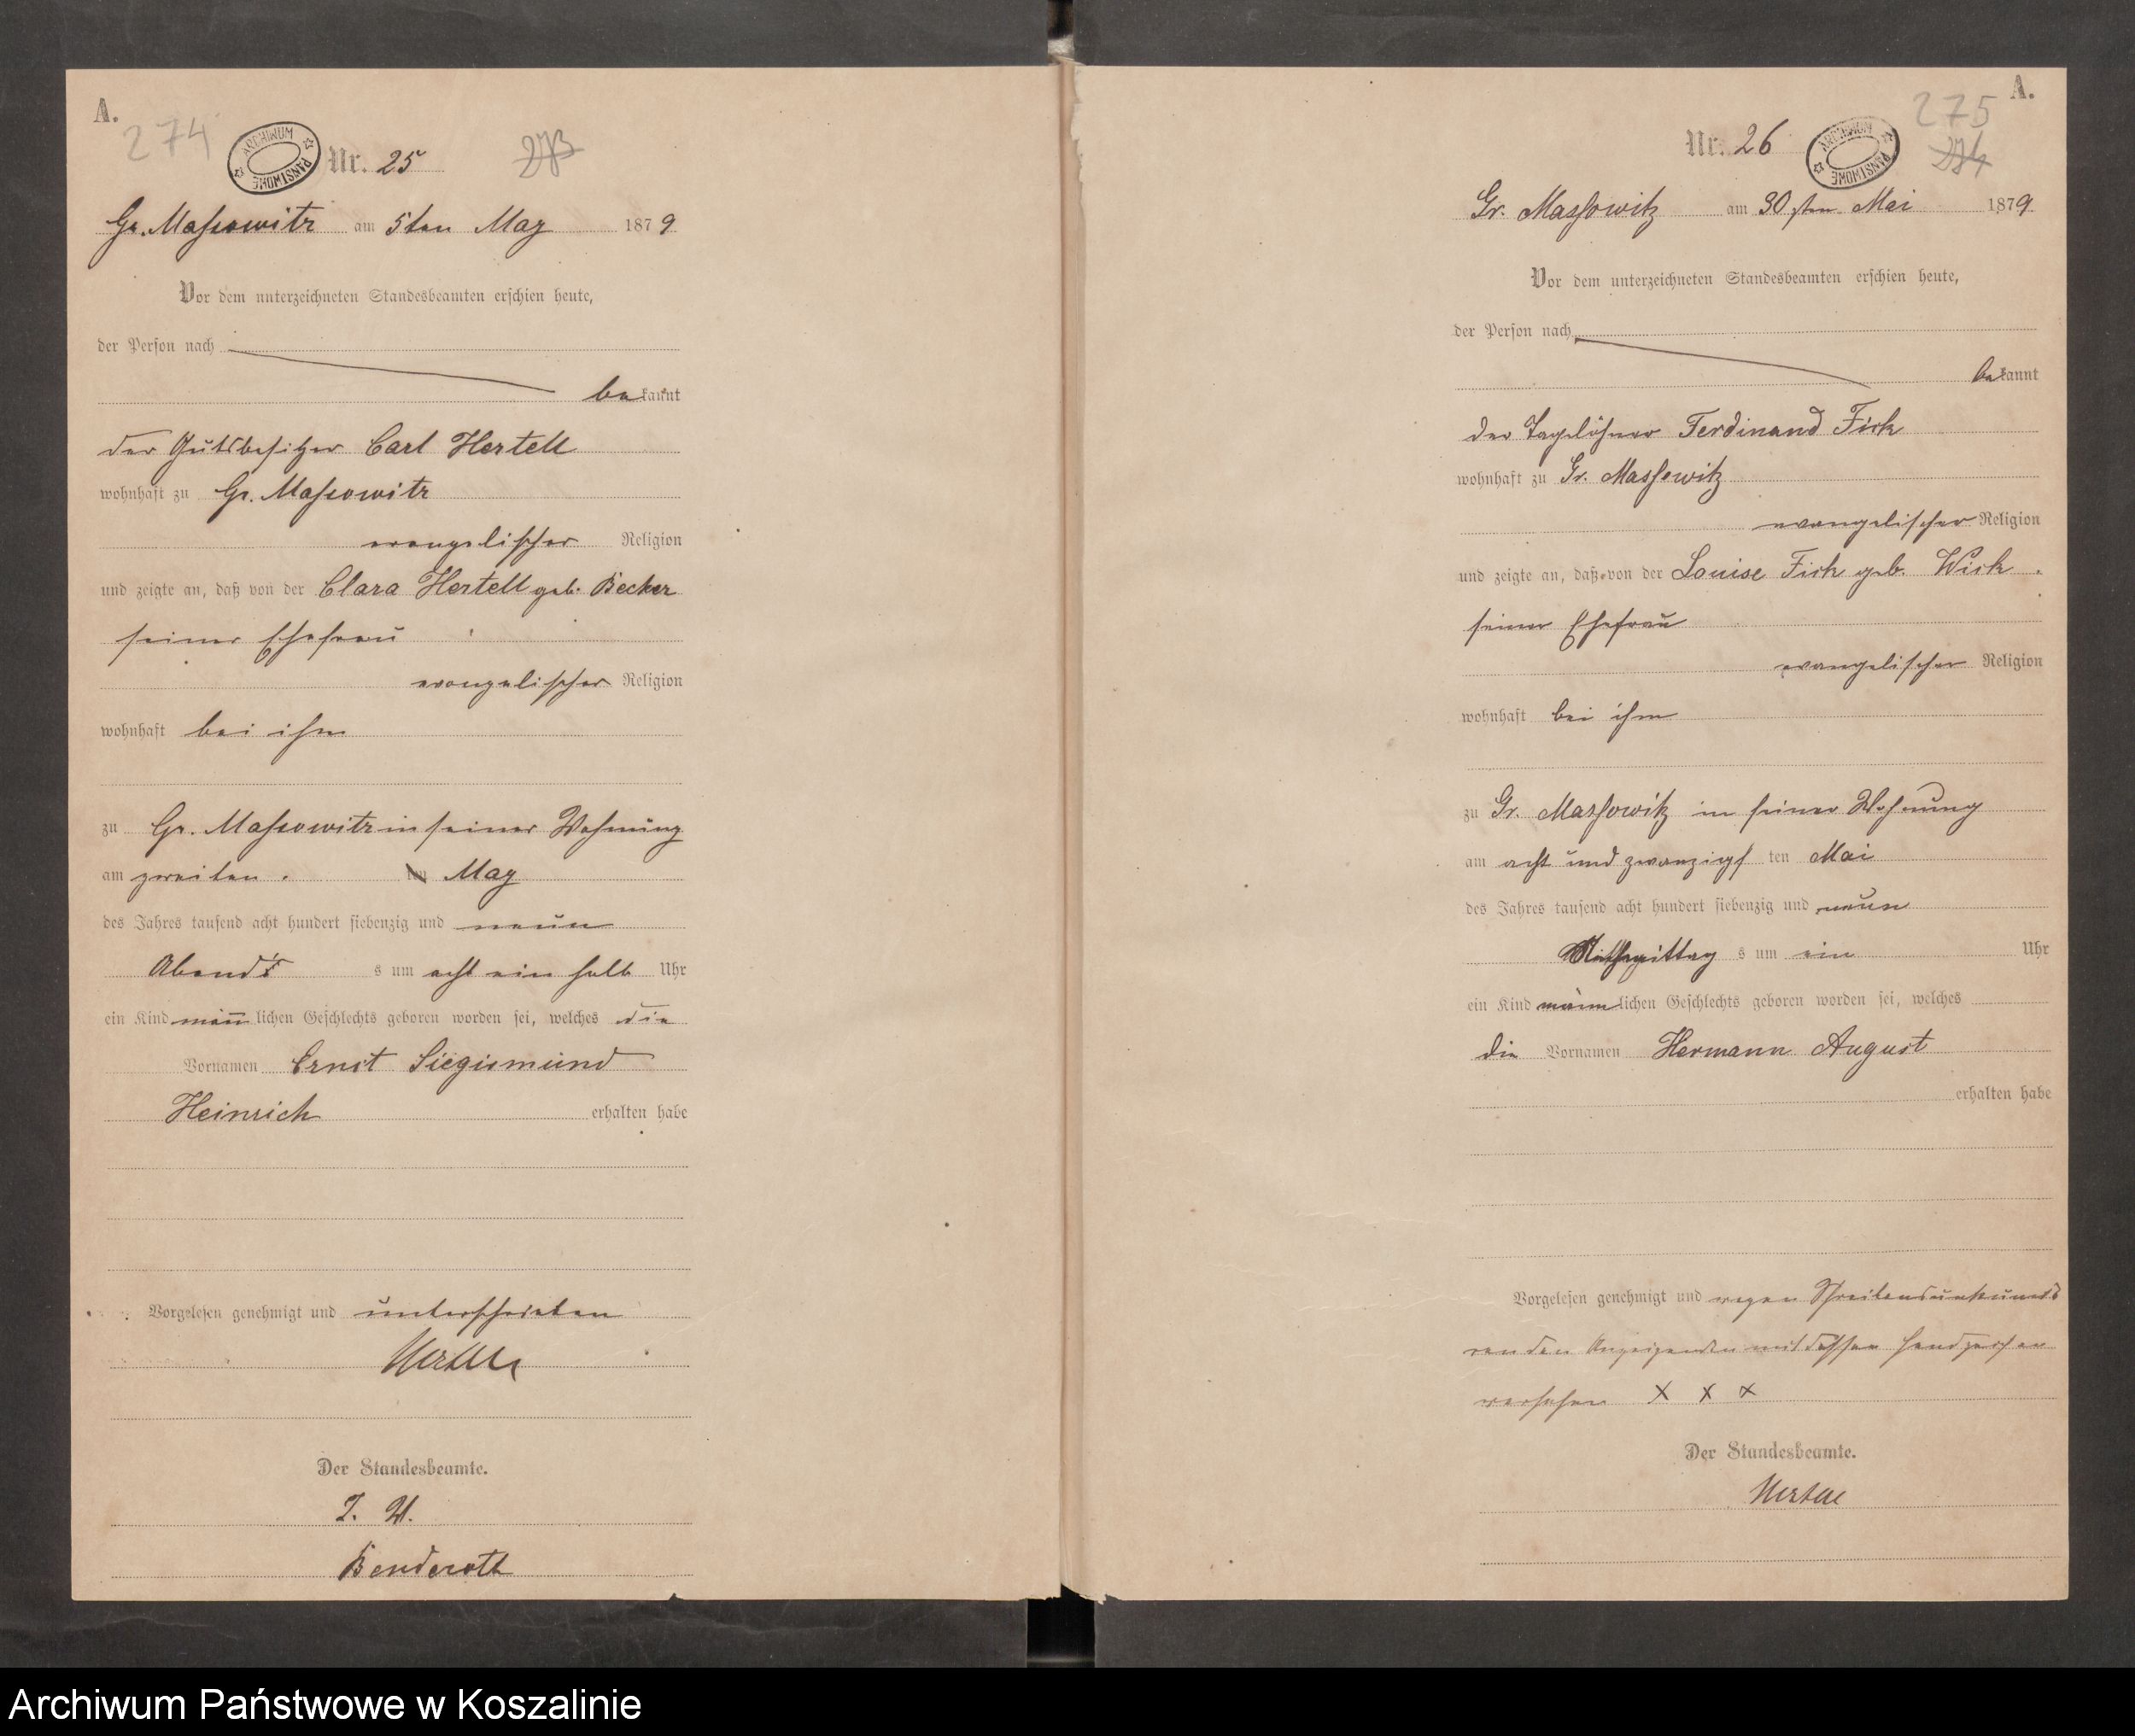 A.
274
ARCHIWUM PAŃSTWOWE
Nr. 25
273
Gr. Massowitz am 5ten May 1879
Vor dem unterzeichneten Standesbeamten erschien heute,
der Person nach
bekannt
der Gutsbesitzer Carl Hertell
wohnhaft zu Gr. Massowitz
evangelischer Religion
und zeigte an, daß von der Clara Hertell geb. Becker
seiner Ehefrau
evangelischer Religion
wohnhaft bei ihm
zu Gr. Massowitz in seiner Wohnung
am zweiten ten May
des Jahres tausend acht hundert siebenzig und neun
Abends s um acht ein halb Uhr
ein Kind männlichen Geschlechts geboren worden sei, welches die
Vornamen Ernst Siegismund
Heinrich erhalten habe
Vorgelesen genehmigt und unterschrieben
Hertell
Der Standesbeamte.
I. V.
Benderoth
A.
275
Nr. 26
ARCHIWUM PAŃSTWOWE
274
Gr. Massowitz am 30sten Mai 1879
Vor dem unterzeichneten Standesbeamten erschien heute,
der Person nach
bekannt
der Tagelöhner Ferdinand Fick
wohnhaft zu Gr. Massowitz
evangelischer Religion
und zeigte an, daß von der Louise Fick geb. Wick
seiner Ehefrau
evangelischer Religion
wohnhaft bei ihm
zu Gr. Massowitz in seiner Wohnung
am acht und zwanzigsten Mai
des Jahres tausend acht hundert siebenzig und neun
Nachmittags um ein Uhr
ein Kind männlichen Geschlechts geboren worden sei, welches
die Vornamen Hermann August
erhalten habe
Vorgelesen genehmigt und wegen Schreibensunkunde
von dem Anzeigenden mit dessen Handzeichen
versehen X X X
Der Standesbeamte.
Hertell
Archiwum Państwowe w Koszalinie